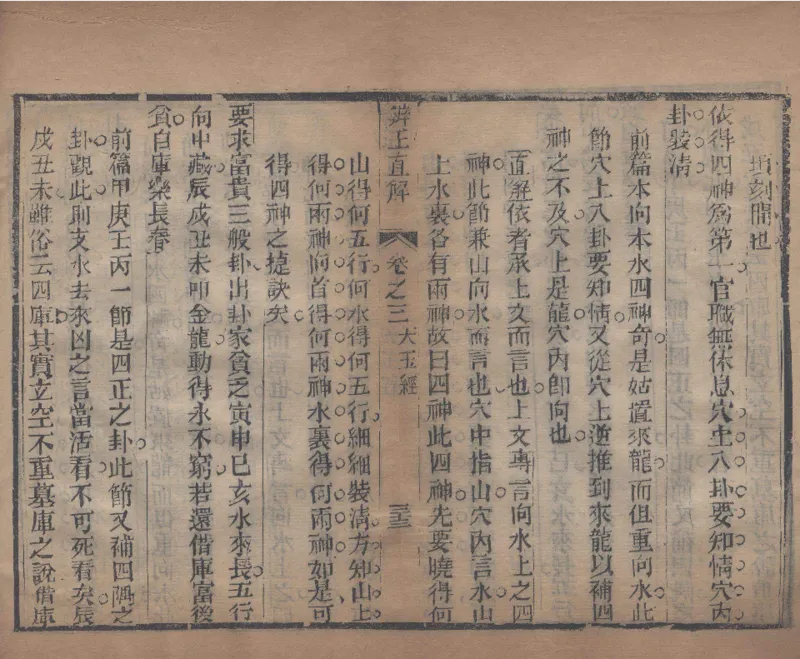 頃刻間也
依得四神爲第一官職無休息穴上八卦要知情穴內
卦裝清
前篇本向本水四神奇是姑置來龍而但重向水此
節穴上八卦要知情又從穴上逆推到來龍以補四
神之不及穴上是龍穴內卽向也
直解依者承上文而言也上文專言向水上之四
神此節兼山向水而言也穴中指山穴內言水山
上水裏各有兩神故曰四神此四神先要曉得何
辨正直解
卷之三
天玉經
三三
山得何五行何水得何五行細細裝清方知山上
得何兩神向首得何兩神水裏得何兩神如是可
得四神之捷訣矣
要求富貴三般卦出卦家貧乏寅申巳亥水來長五行
向中藏辰戌丑未叩金龍動得永不窮若還借庫富後
貧自庫樂長春
前篇甲庚壬丙一節是四正之卦此節又補四隅之
卦觀此則支水去來凶之言當活看不可死看矣辰
戌丑未雖俗云四庫其實立空不重墓庫之說借庫